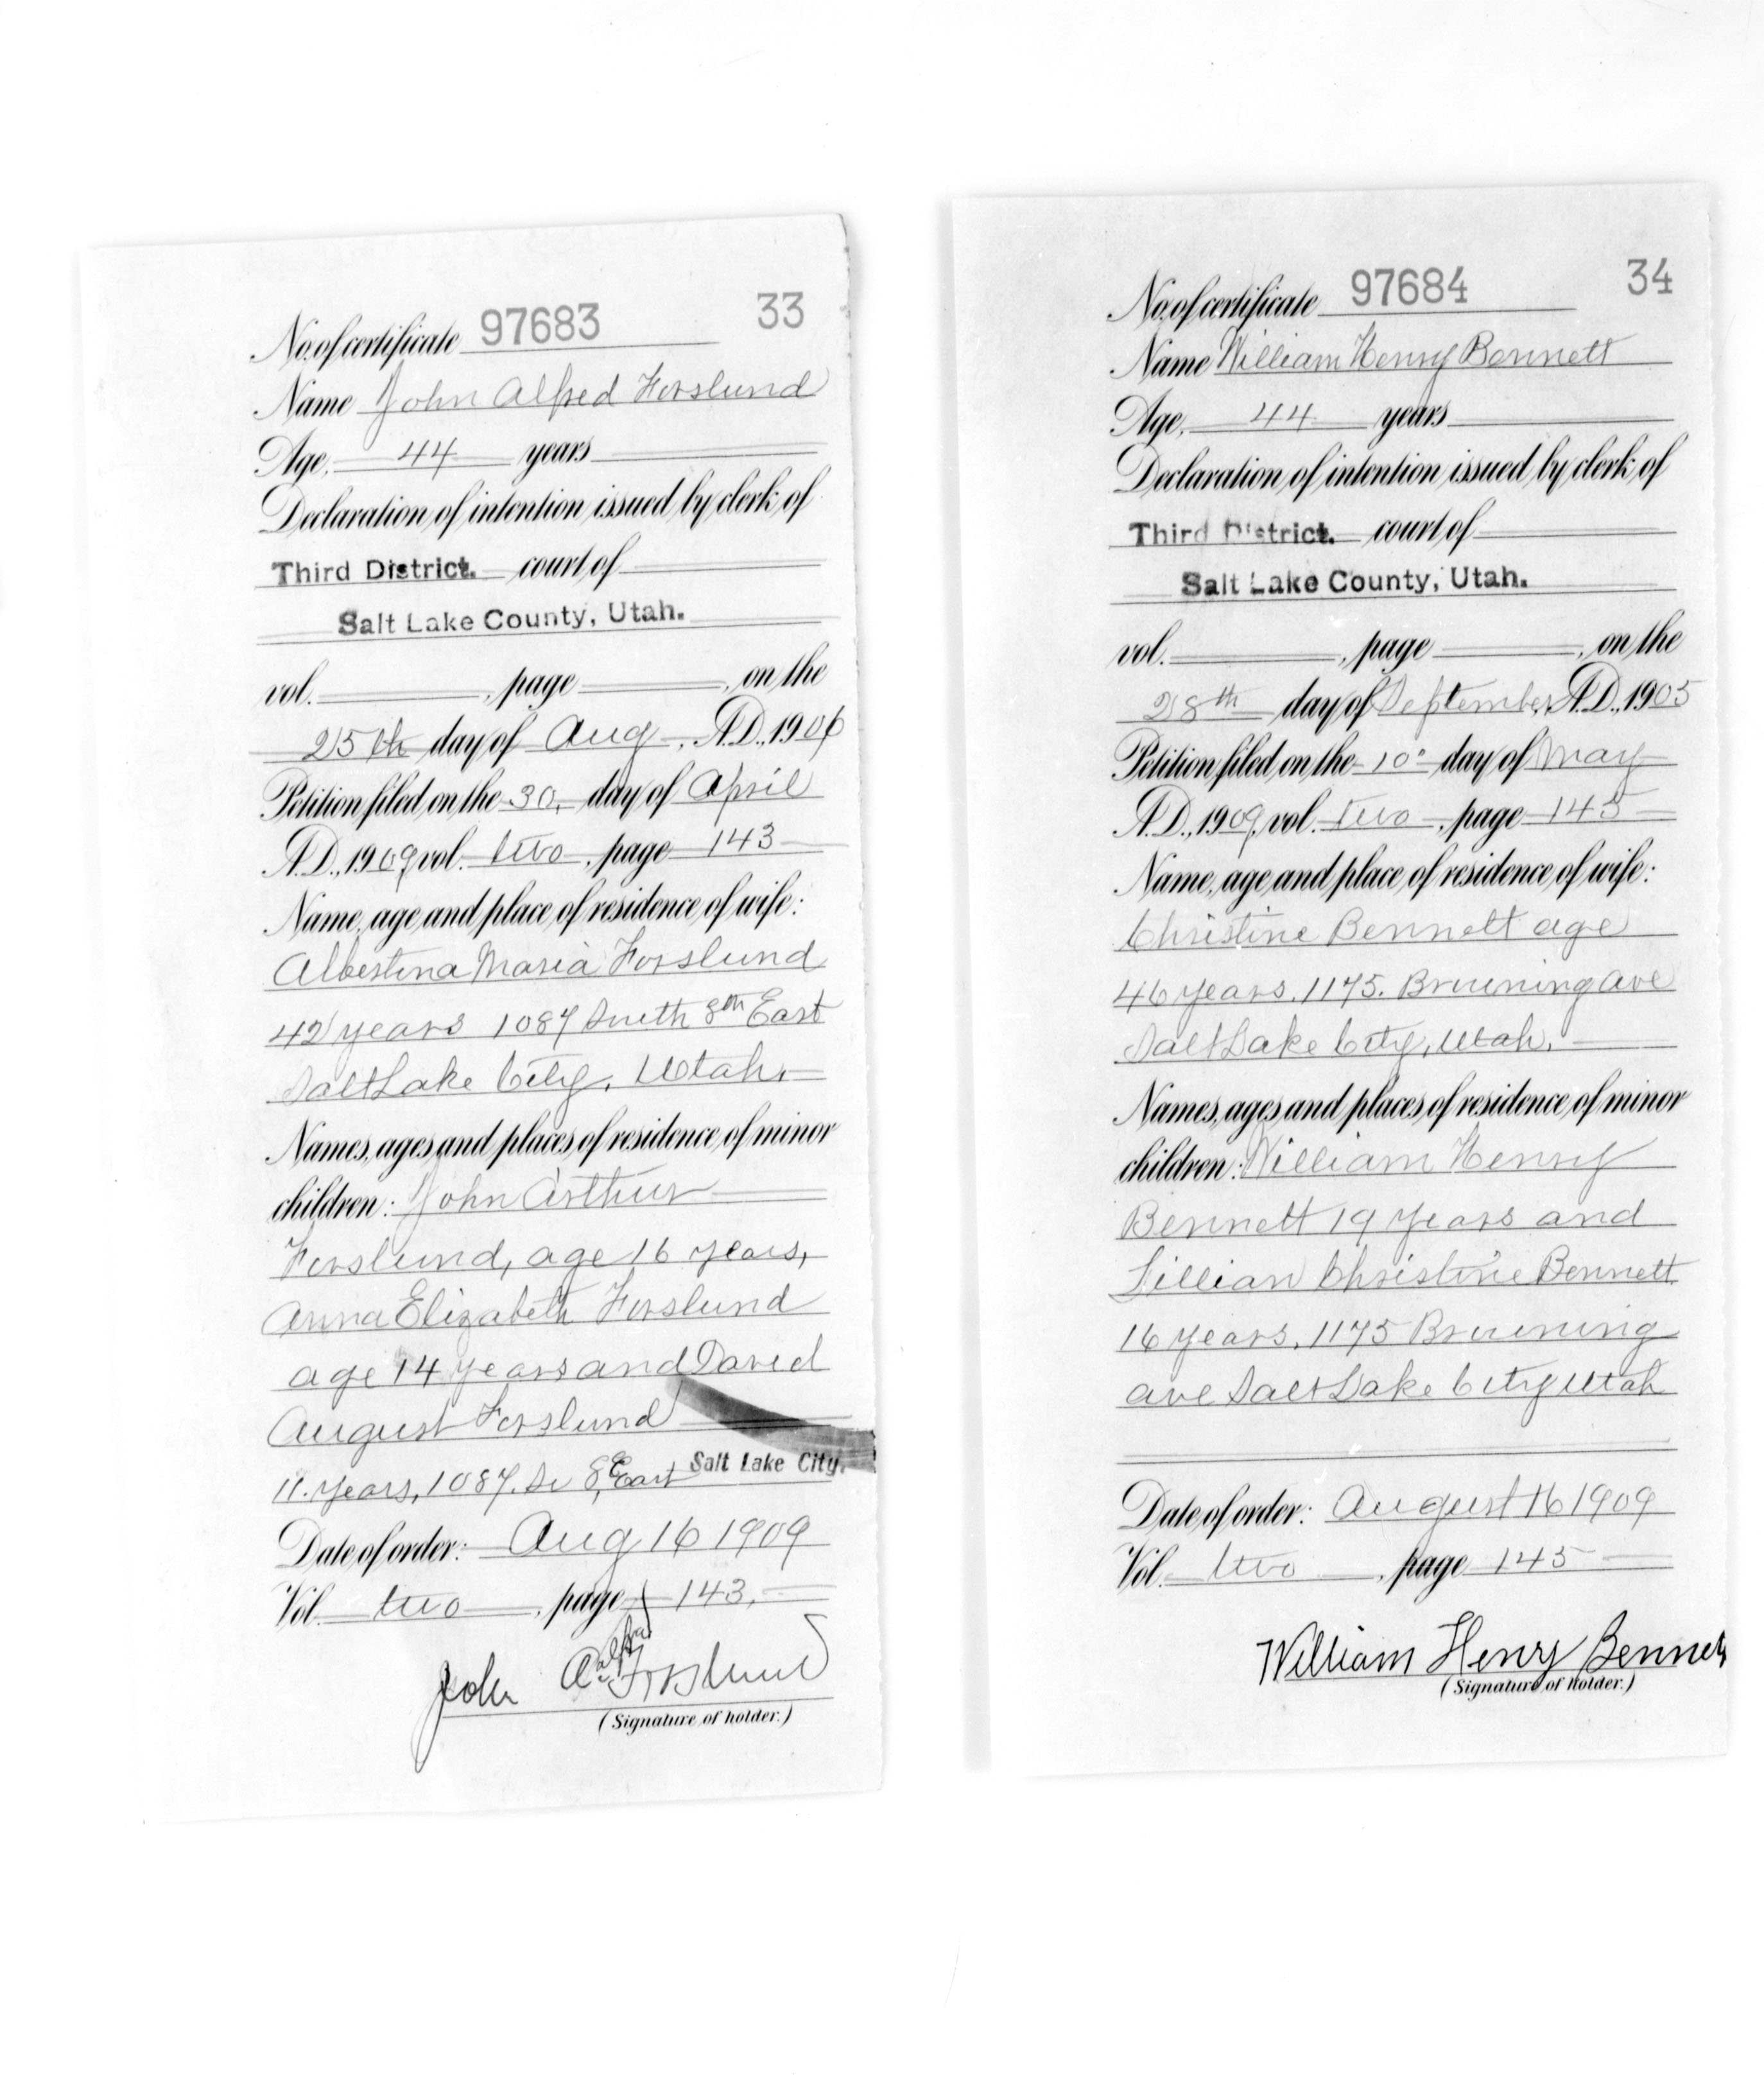 No. of certificate 97683 33
Name John Alfred Forslund
Age, 44 years
Declaration of intention issued by clerk of
Third District. court of
Salt Lake County, Utah.
vol. , page , on the
25th day of Aug , A.D., 1906
Petition filed on the 30, day of April
A.D., 1909 vol. two , page 143
Name, age and place of residence of wife:
Albertina Maria Forslund
42 years 1087 South 8th East
Salt Lake City, Utah.
Names, ages and places of residence of minor
children: John Arthur
Forslund, age 16 years,
Anna Elizabeth Forslund
age 14 years and David
August Forslund
11. years, 1087. So 8, East Salt Lake City.
Date of order: Aug 16 1909
Vol. two , page 143,
John Alfred Forslund
(Signature of holder.)
No. of certificate 97684 34
Name William Henry Bennett
Age, 44 years
Declaration of intention issued by clerk of
Third District. court of
Salt Lake County, Utah.
vol. , page , on the
28th day of September, A.D., 1905
Petition filed on the 10" day of May
A.D., 1909, vol. two , page 145
Name, age and place of residence of wife:
Christine Bennett age
46 years. 1175. Browning ave
Salt Lake City, Utah.
Names, ages and places of residence of minor
children: William Henry
Bennett 19 years and
Lillian Christine Bennett
16 years. 1175 Browning
ave Salt Lake City Utah
Date of order: August 16 1909
Vol. two , page 145
William Henry Bennett
(Signature of holder.)